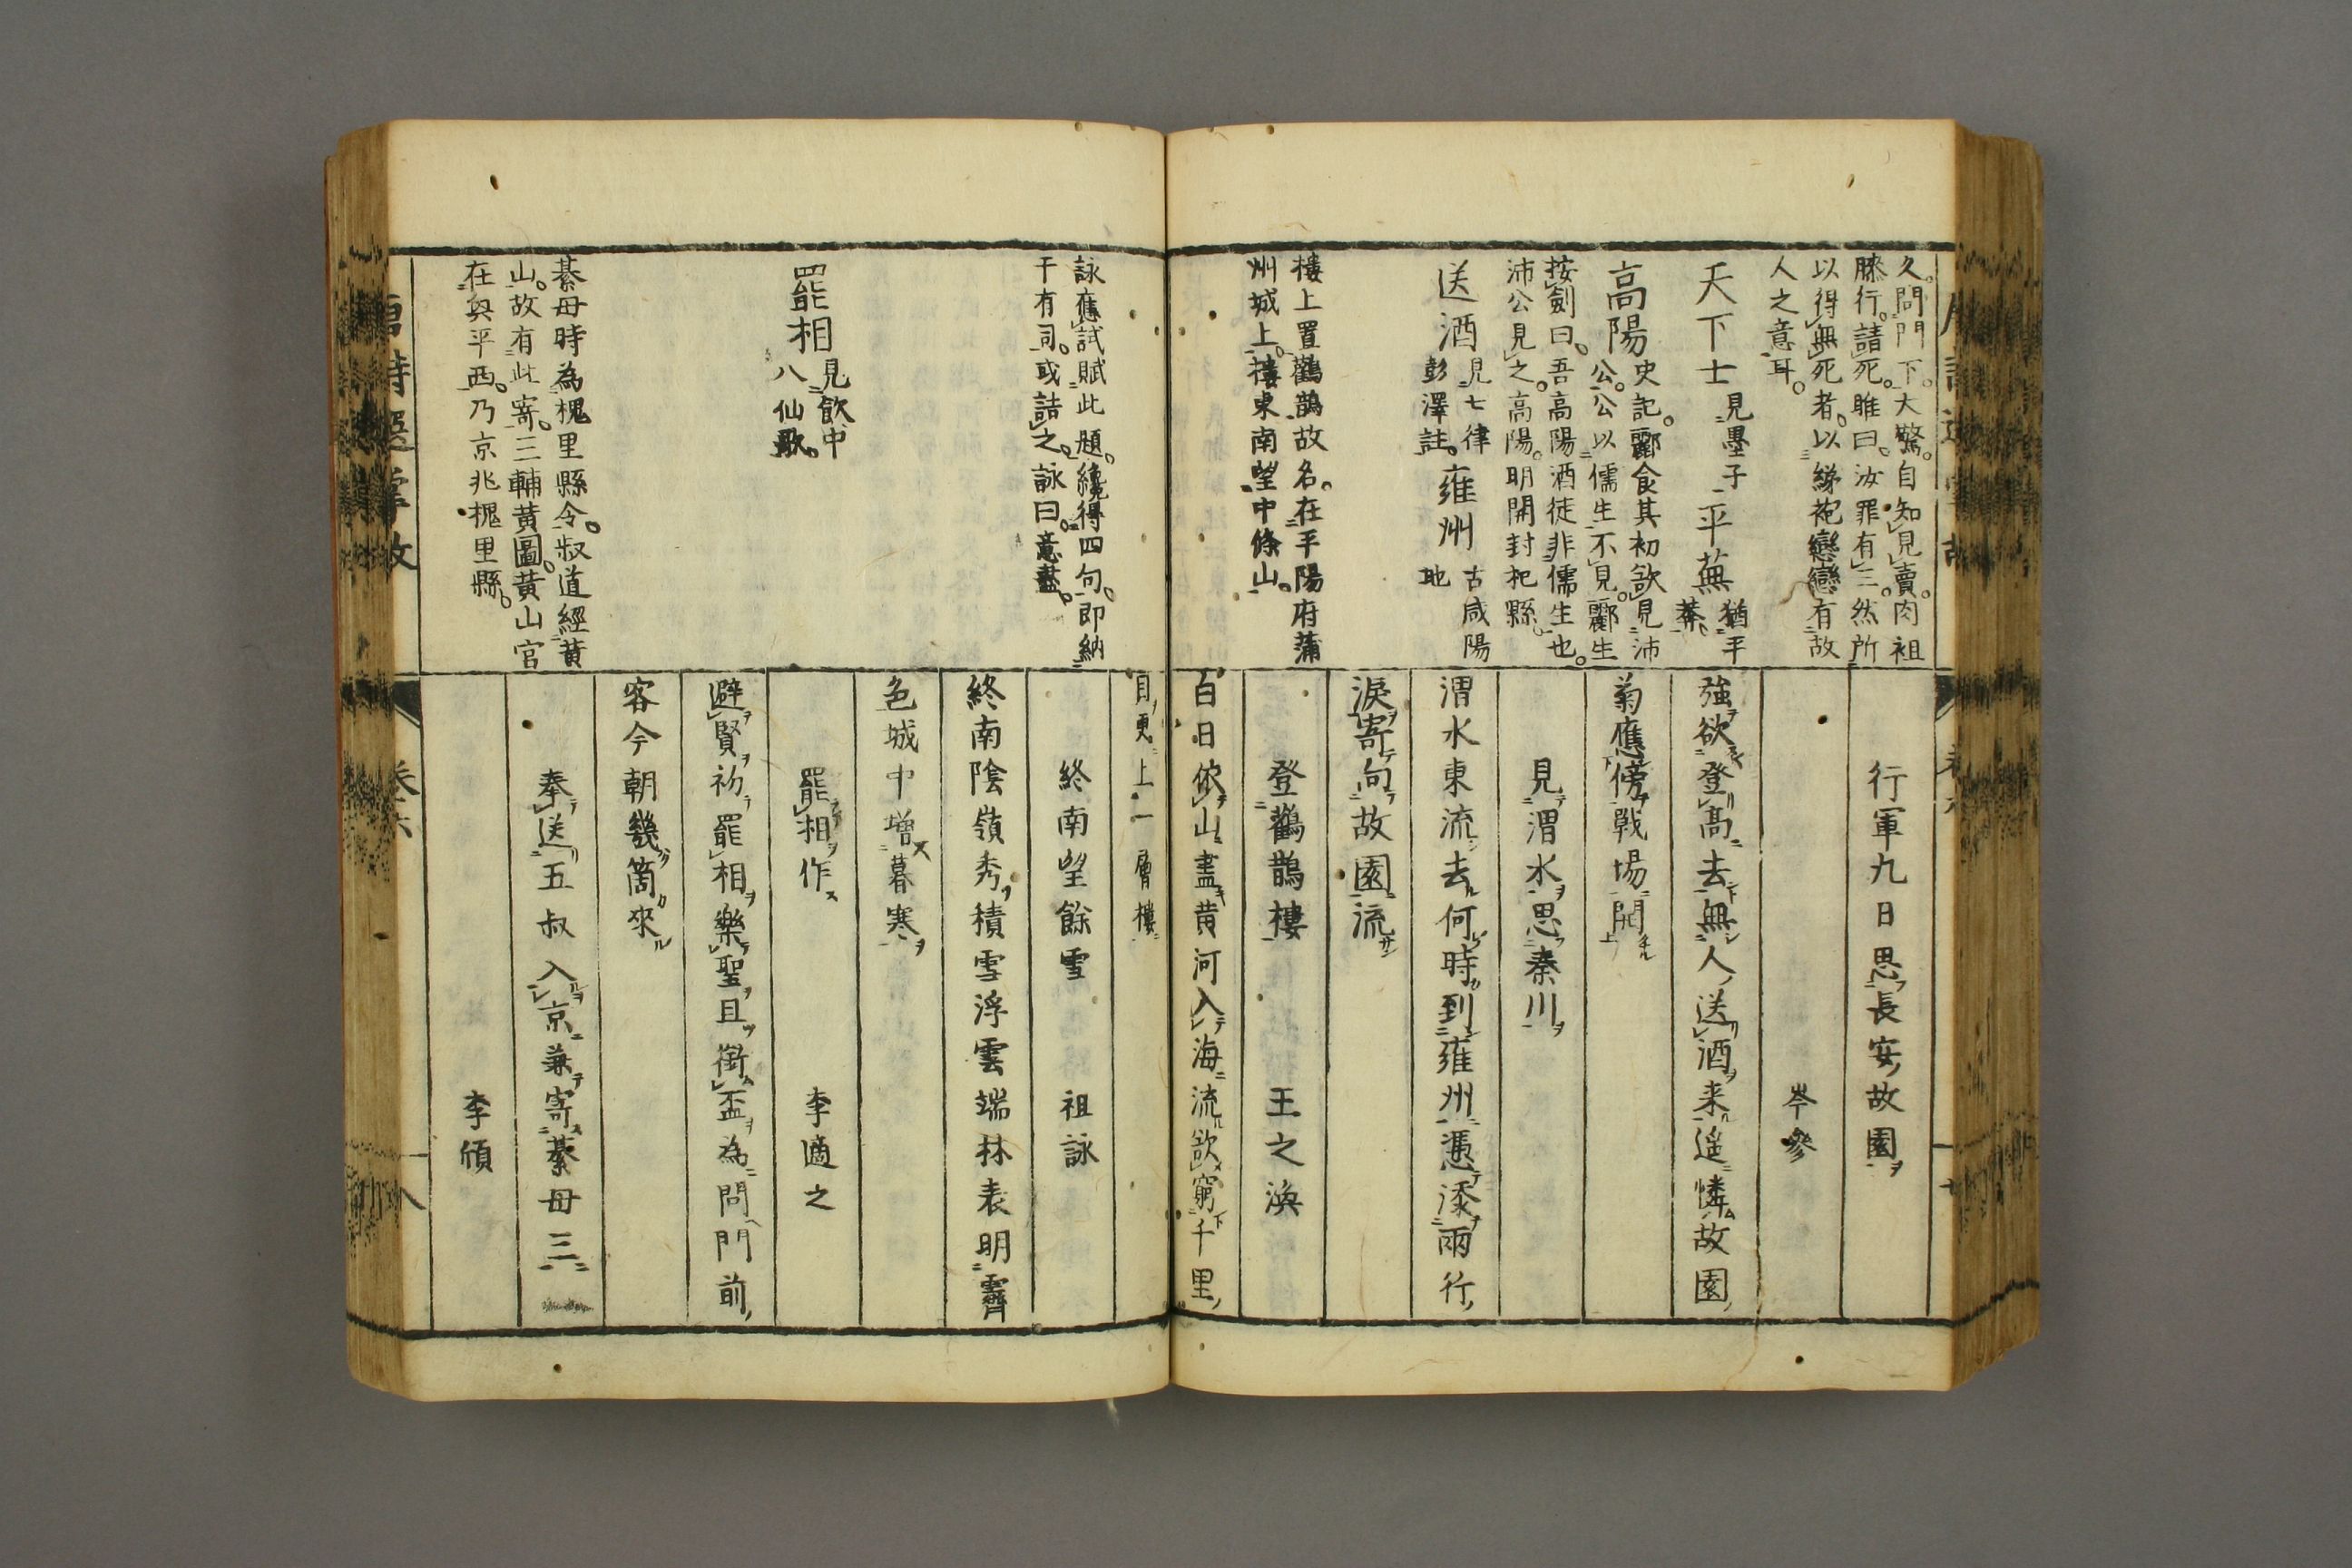 久。問門下。大驚。自知見賣。肉袒
膝行。請死。睢曰。汝罪有三。然所
以得無死者。以綈袍戀戀有故
人之意耳。
天下士 見墨子 平蕪 猶平莽。
高陽 史記。酈食其初欲見沛
公。公以儒生不見。酈生
按劍曰。吾高陽酒徒。非儒生也。
沛公見之。高陽。明開封杞縣。
送酒 見七律彭澤註。 雍州 古咸陽地
樓上置鸛鵲故名。在平陽府蒲
州城上。樓東南望中條山。
行軍九日思長安故園
岑參
強欲登高去無人送酒来遥憐故園
菊應傍戰場開
見渭水思秦川
渭水東流去何時到雍州憑添兩行
淚寄向故園流
登鸛鵲樓 王之渙
白日依山盡黄河入海流欲窮千里
詠應試賦此題。纔得四句。即納
于有司。或詰之。詠曰。意盡。
罷相 見飲中八仙歌。
綦母時為槐里縣令。叔道經黄
山。故有此寄。三輔黄圖。黄山宮
在興平西。乃京兆槐里縣。
目更上一層樓
終南望餘雪 祖詠
終南陰嶺秀積雪浮雲端林表明霽
色城中增暮寒
罷相作 李適之
避賢初罷相樂聖且銜盃為問門前
客今朝幾箇來
奉送五叔入京兼寄綦母三
李頎
唐詩選掌故
卷六
八